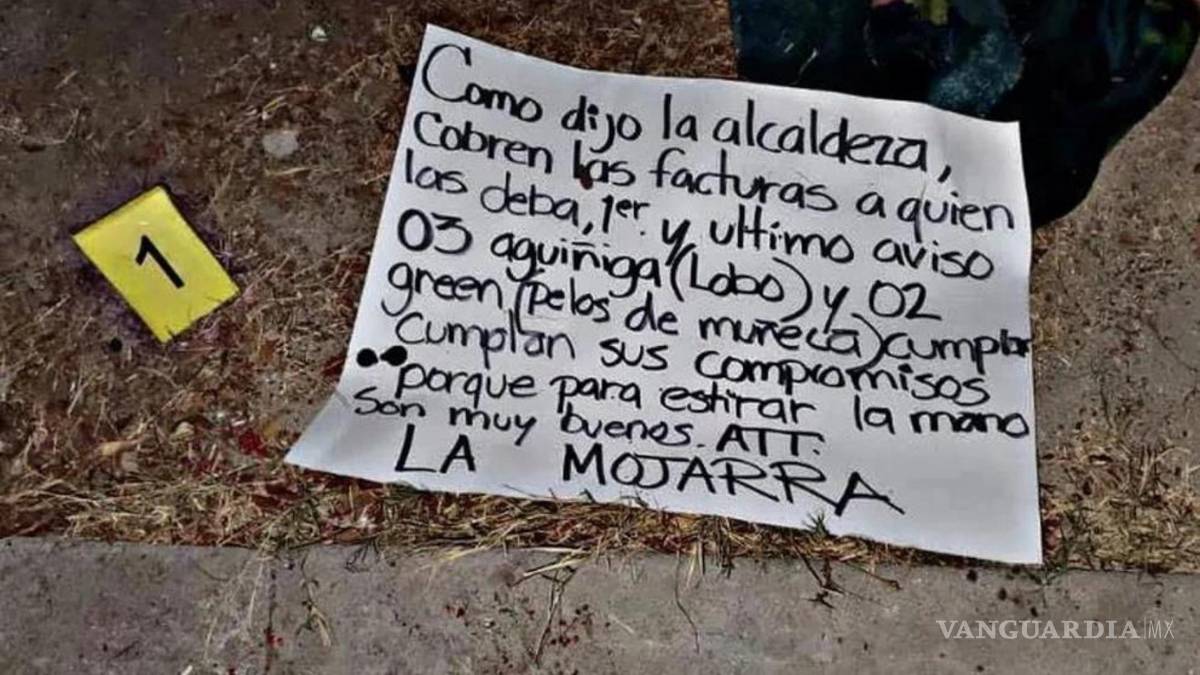 1
Como dijo la alcaldeza,
Cobren las facturas a quien
las deba, 1er. y ultimo aviso
03 aguiñiga (Lobo) y 02
green (pelos de muñeca) cumplan
cumplan sus compromisos
porque para estirar la mano
son muy buenos. ATT:
LA MOJARRA
VANGUARDIA|MX